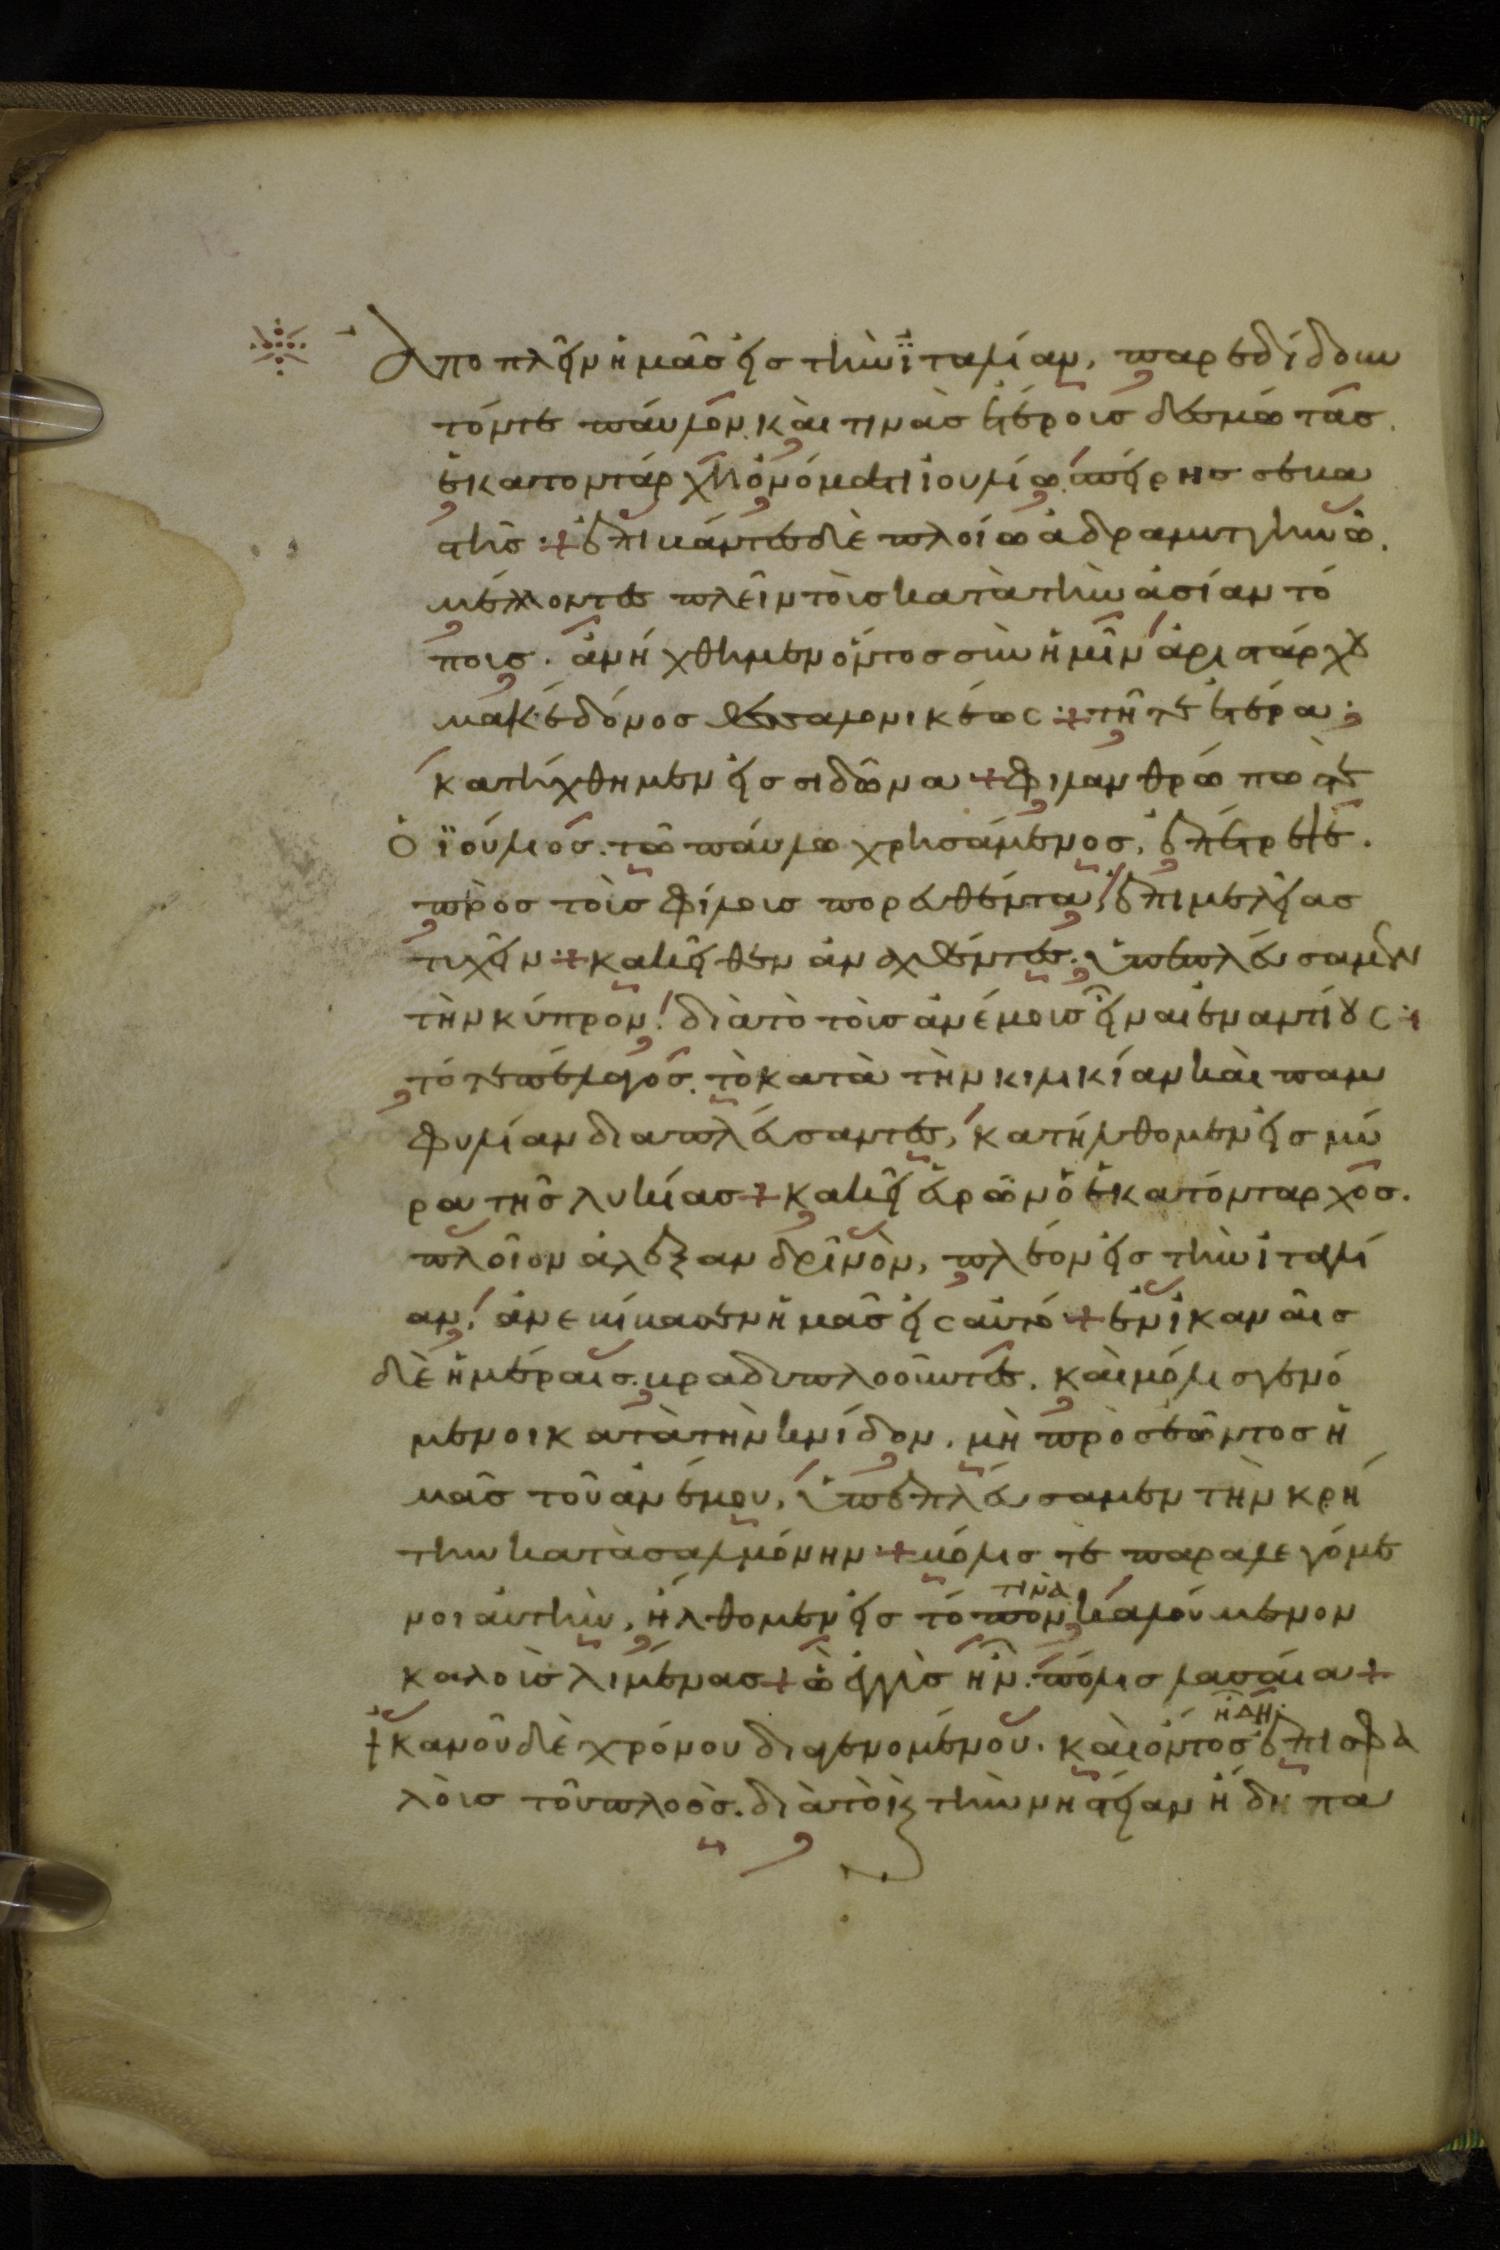 Ἀποπλεῖν ἡμᾶς εἰς τὴν ἰταλίαν, παρεδίδουν
τόν τε παῦλον. καὶ τινὰς ἑτέροις δεσμώτας.
ἑκατοντάρχη ὀνόματι ἰουλίω. σπείρης σεβα
στῆς + ἐπιβάντες δὲ πλοίω ἀδραμυτηνῶ.
μέλλοντες πλεῖν τοὶς κατὰ τὴν ἀσίαν τό
ποις. ἀνήχθημεν ὄντος σὺν ἡμῖν ἀριστάρχου
μακεδόνος θεσσαλονικέως + τῆ τε ἑτέρα
κατήχθημεν εἰς σιδῶνα + φιλανθρώπως τε
ὁ ἰούλιος. τῶ παύλω χρησάμενος, ἐπέτρεψε.
πρὸς τοὶς φίλοις πορευθέντα, ἐπιμελείας
τυχεῖν + κακεῖθεν ἀναχθέντες. ὑπεπλεύσαμεν
τὴν κύπρον, διὰ τὸ τοὶς ἀνέμοις εἶναι ἐναντίους +
τό τε πέλαγος. τὸ κατὰ τὴν κιλικίαν καὶ παμ
φυλίαν διαπλεύσαντες, κατήλθομεν εἰς μύ
ρα τῆς λυκίας + κακεῖ εὑρῶν ὁ ἑκατόνταρχος.
πλοῖον ἀλεξανδρῖνὸν, πλέον εἰς τὴν ἰταλί
αν, ἀνεβίβασεν ἡμᾶς εἰς αὐτό + ἐν ἱκαναῖς
δὲ ἡμέραις. βραδυπλοοῦντες. καὶ μόλις γενό
μενοι κατὰ τὴν κνίδον. μὴ προσεῶντος ἡ
μᾶς τοῦ ἀνέμου, ὑπεπλεύσαμεν τὴν κρή
την κατὰ σαλμόνην + μόλις τὲ παραλεγόμε
νοι αὐτὴν, ἤλθομεν εἰς τόπον τινὰ καλούμενον
καλοὶς λιμένας + ὦ ἐγγὶς ἦν. πόλις λασαία +
Ἱκανοῦ δὲ χρόνου διαγενομένου. καὶ ὄντος ἤδη ἐπισφα
λὸις τοῦ πλοὸς. διὰ τὸ καὶ τὴν νηστείαν ἤδη πα